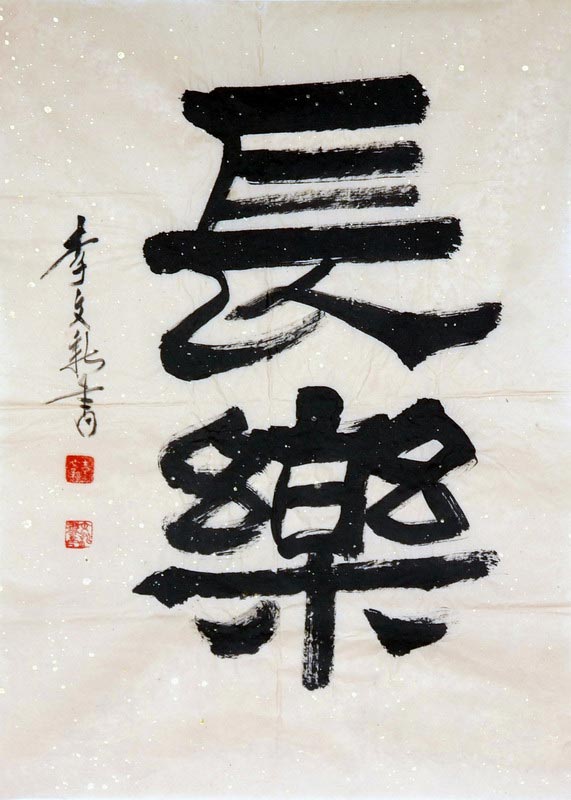 長樂
李文新書